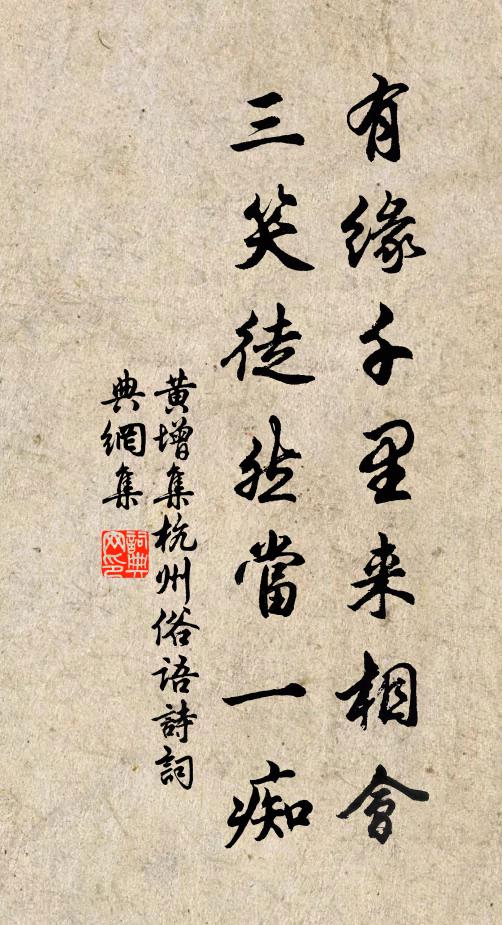 有緣千里来相會
三笑徒然當一痴
黄增集杭州俗语詩詞
典網集
詞典
网印